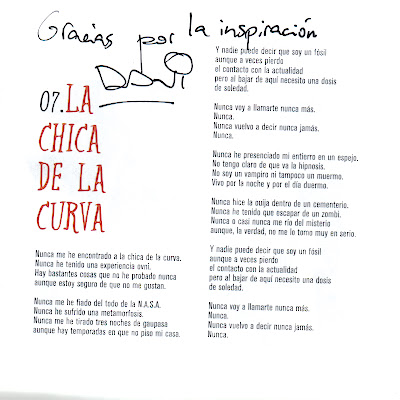 Gracias por la inspiración
DANI
07.LA
CHICA
DE LA
CURVA
Nunca me he encontrado a la chica de la curva.
Nunca he tenido una experiencia ovni.
Hay bastantes cosas que no he probado nunca
aunque estoy seguro de que no me gustan.
Nunca me he fiado del todo de la N.A.S.A.
Nunca he sufrido una metamorfosis.
Nunca me he tirado tres noches de gaupasa
aunque hay temporadas en que no piso mi casa.
Y nadie puede decir que soy un fósil
aunque a veces pierdo
el contacto con la actualidad
pero al bajar de aquí necesito una dosis
de soledad.
Nunca voy a llamarte nunca más.
Nunca.
Nunca vuelvo a decir nunca jamás.
Nunca.
Nunca he presenciado mi entierro en un espejo.
No tengo claro de que va la hipnosis.
No soy un vampiro ni tampoco un muermo.
Vivo por la noche y por el día duermo.
Nunca hice la ouija dentro de un cementerio.
Nunca he tenido que escapar de un zombi.
Nunca o casi nunca me río del misterio
aunque, la verdad, no me lo tomo muy en serio.
Y nadie puede decir que soy un fósil
aunque a veces pierdo
el contacto con la actualidad
pero al bajar de aquí necesito una dosis
de soledad.
Nunca voy a llamarte nunca más.
Nunca.
Nunca vuelvo a decir nunca jamás.
Nunca.